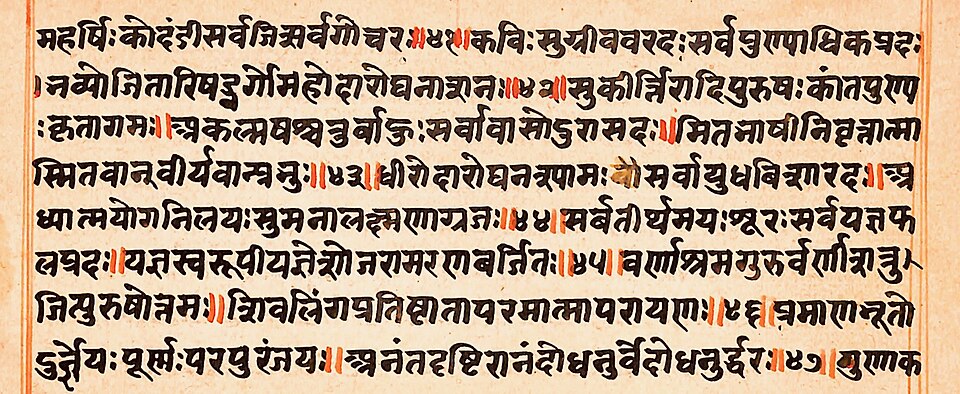 महर्षिः कोदंडी सर्वजित्सर्वगोचरः॥४१॥कविः सुग्रीववरदः सर्वपुण्याधिकप्रदः
।नव्यो जितारिषड्वर्गो महोदारोघनाशनः॥४२॥सुकीर्त्तिरादिपुरुषः कांतपुण्य
ःकृतागमः॥अकल्मषश्चतुर्बाहुः सर्वावासो दुरासदः॥मितभाषी निवृत्तात्मा
स्मितवान् वीर्यवान्प्रभुः॥४३॥धीरोदारोघनश्यामः सर्वायुधबिशारदः॥अ
ध्यात्मयोगनिलयः सुमनालक्ष्मणाग्रजः॥४४॥सर्बतीर्थमयः शूरः सर्वयज्ञफ
लप्रदः॥यज्ञस्वरूपी यज्ञेशो जरामरणबर्जितः॥४५॥वर्णाश्रमगुरुर्वर्णी शत्रु
जित्पुरुषोत्तमः॥शिवलिंगप्रतिष्टाता परमात्मा परायणः॥४६॥प्रमाणभूतो
दुर्ज्ञेयः पूर्स्मः परपुरंजयः॥अनंतदृष्टिरानंदो धनुर्वेदो धनुर्द्धरः॥४७॥गुणाक